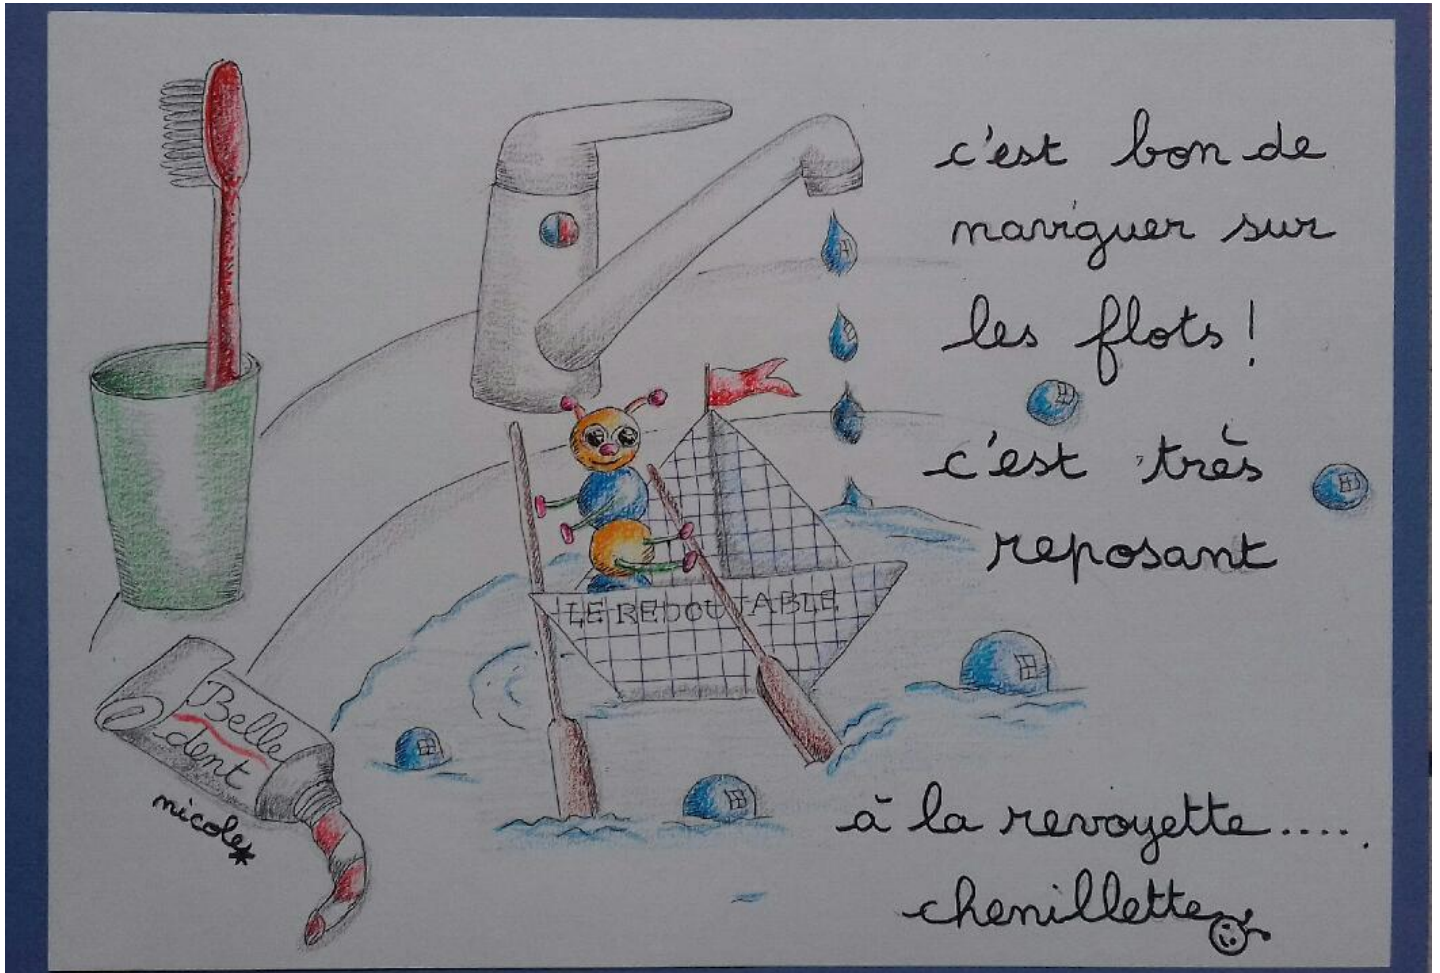 c'est bon de
naviguer sur
les flots !
c'est très
reposant
LE REDOUTABLE
Belle
dent
nicole*
à la revoyette.....
chenillette